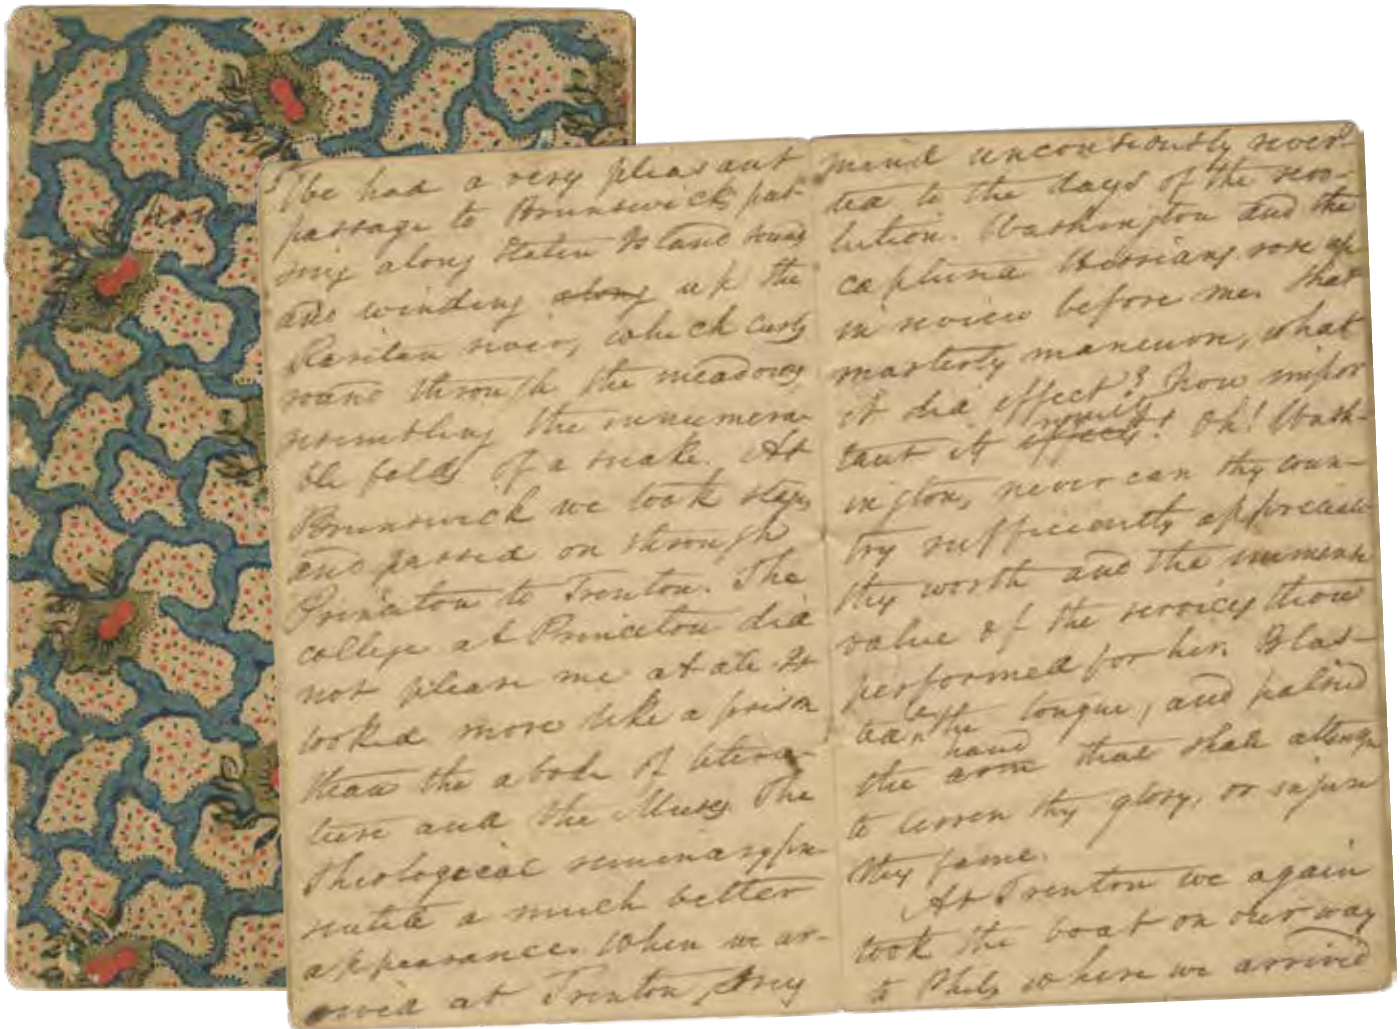 We had a very pleasant
passage to Brunswick, pas-
sing along Staten Island sound
and winding along up the
Raritan river, which curls
round through the meadows
resembling the innumera-
ble folds of a snake. At
Brunswick we took stages
and passed on through
Princeton to Trenton. The
college at Princeton did
not please me at all It
looked more like a prison
than the abode of litera-
ture and the Muses. The
Theological seminary pre-
sented a much better
appearance. When we ar-
rived at Trenton, my
3
mind unconsciously rever-
ted to the days of the revo-
lution. Washington and the
captured Hessians rose up
in review before me. That
masterly maneuver, what
it did effect? how impor
tant it effects! results Oh! Wash-
ington, never can thy coun-
try sufficiently appreciate
thy worth and the immense
value of the services thou
performed for her. Blas-
ted be the tongue, and palsied
the arm hand that shall attempt
to lessen thy glory, or injure
thy fame.
At Trenton we again
took the boat on our way
to Phila where we arrived